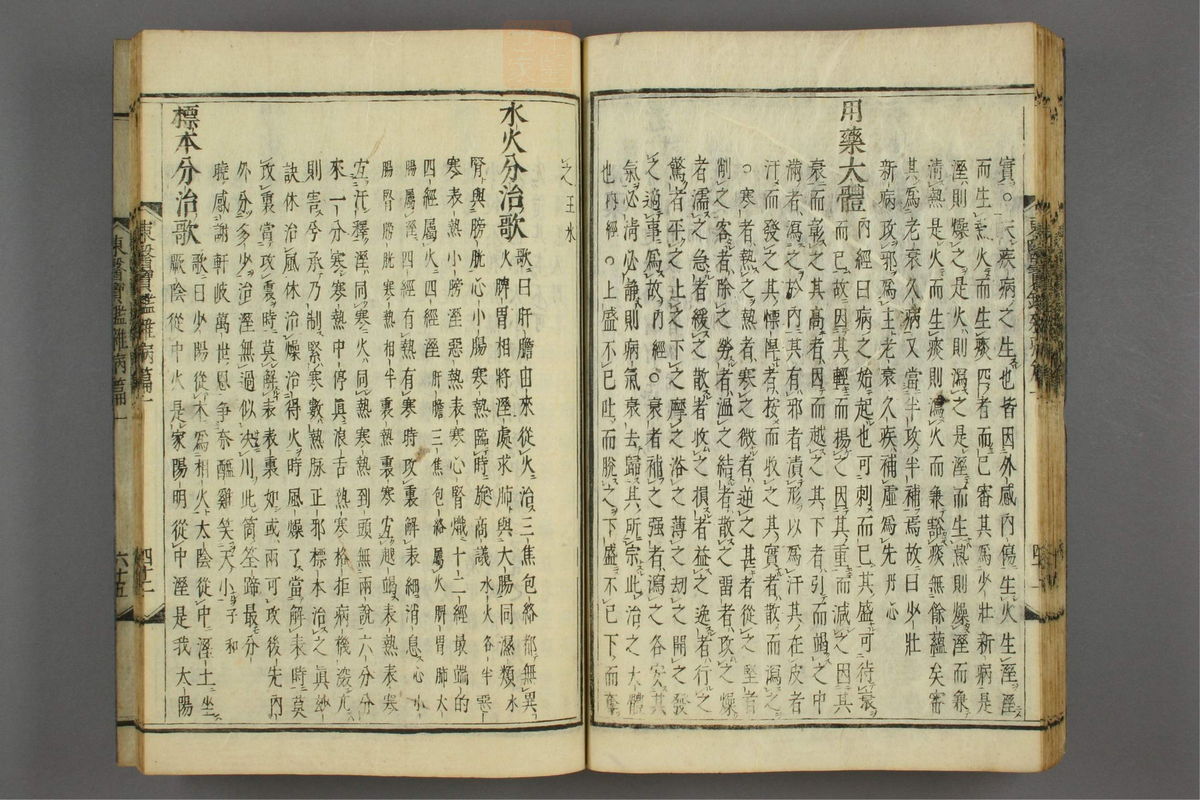 實。夫疾病之生也皆因外感內傷生火生溼溼
而生熱火而生痰四者而已審其爲少壯新病是
溼則燥之是火則瀉之是溼而生熱則燥溼而兼
清熱是火而生痰則瀉火而兼豁痰無餘蘊矣審
其爲老衰久病又當半攻半補焉故曰少壯
新病攻邪爲主老衰久疾補虛爲先丹心
用藥大體
內經曰病之始起也可刺而已其盛可待衰
而已故因其輕而揚之因其重而減之因其
衰而彰之其高者因而越之其下者引而竭之中
滿者瀉之於內其有邪者漬形以爲汗其在皮者
汗而發之其慓悍者按而收之其實者散而瀉之
。寒者熱之熱者寒之微者逆之甚者從之堅者
削之客者除之勞者溫之結者散之留者攻之燥
者濡之急者緩之散者收之損者益之逸者行之
驚者平之上之下之摩之浴之薄之劫之開之發
之適事爲故內經。衰者補之强者瀉之各安其
氣必淸必靜則病氣衰去歸其所宗此治之大體
也內經。上盛不已吐而脫之下盛不已下而奪
之王氷
水火分治歌
歌曰肝膽由來從火治三焦包絡都無異
脾胃相將溼處求肺與大腸同濕類水
腎與膀胱心小腸寒熱臨時旋商議水火各半惡
寒表熱小膀溼惡熱表寒心腎熾十二經最端的
四經屬火四經溼肝膽三焦包絡屬火脾胃肺大
腸屬溼四經有熱有寒時攻裏解表細消息心小
腸腎膀胱寒熱相半熱裏寒宜越竭表熱表寒
宜汗釋溼同寒火同熱寒熱到頭無兩說六分分
來一分寒寒熱中停眞浪舌熱寒格拒病機深亢
則害兮承乃制緊寒數熱脉正邪標本治之眞妙
訣休治風休治燥治得火時風燥了當解表時莫
攻裏當攻裏時莫解表表裏如或兩可攻後先內
外分多少治溼無過似決川此箇筌蹄最分
曉感謝軒岐萬世恩爭奈醯雞笑天小子和
標本分治歌
歌曰少陽從本爲相火太陰從中溼土坐
厥陰從中火是家陽明從中溼是我太陽
東醫寶鑑雜病篇一
四十二
六十五